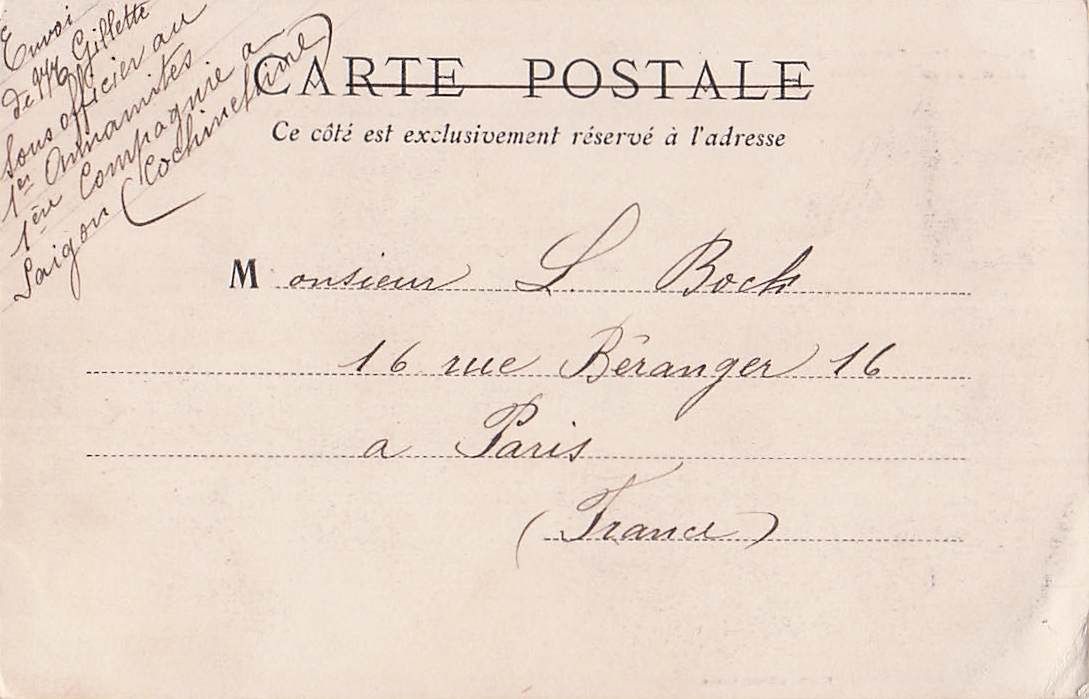 Envoi
de Mr Gillette
sous officier au
1er Annamites
1ère Compagnie a
Saigon (Cochinchine)
CARTE POSTALE
Ce côté est exclusivement réservé à l'adresse
Monsieur L. Bock
16 rue Béranger 16
a Paris
(France)